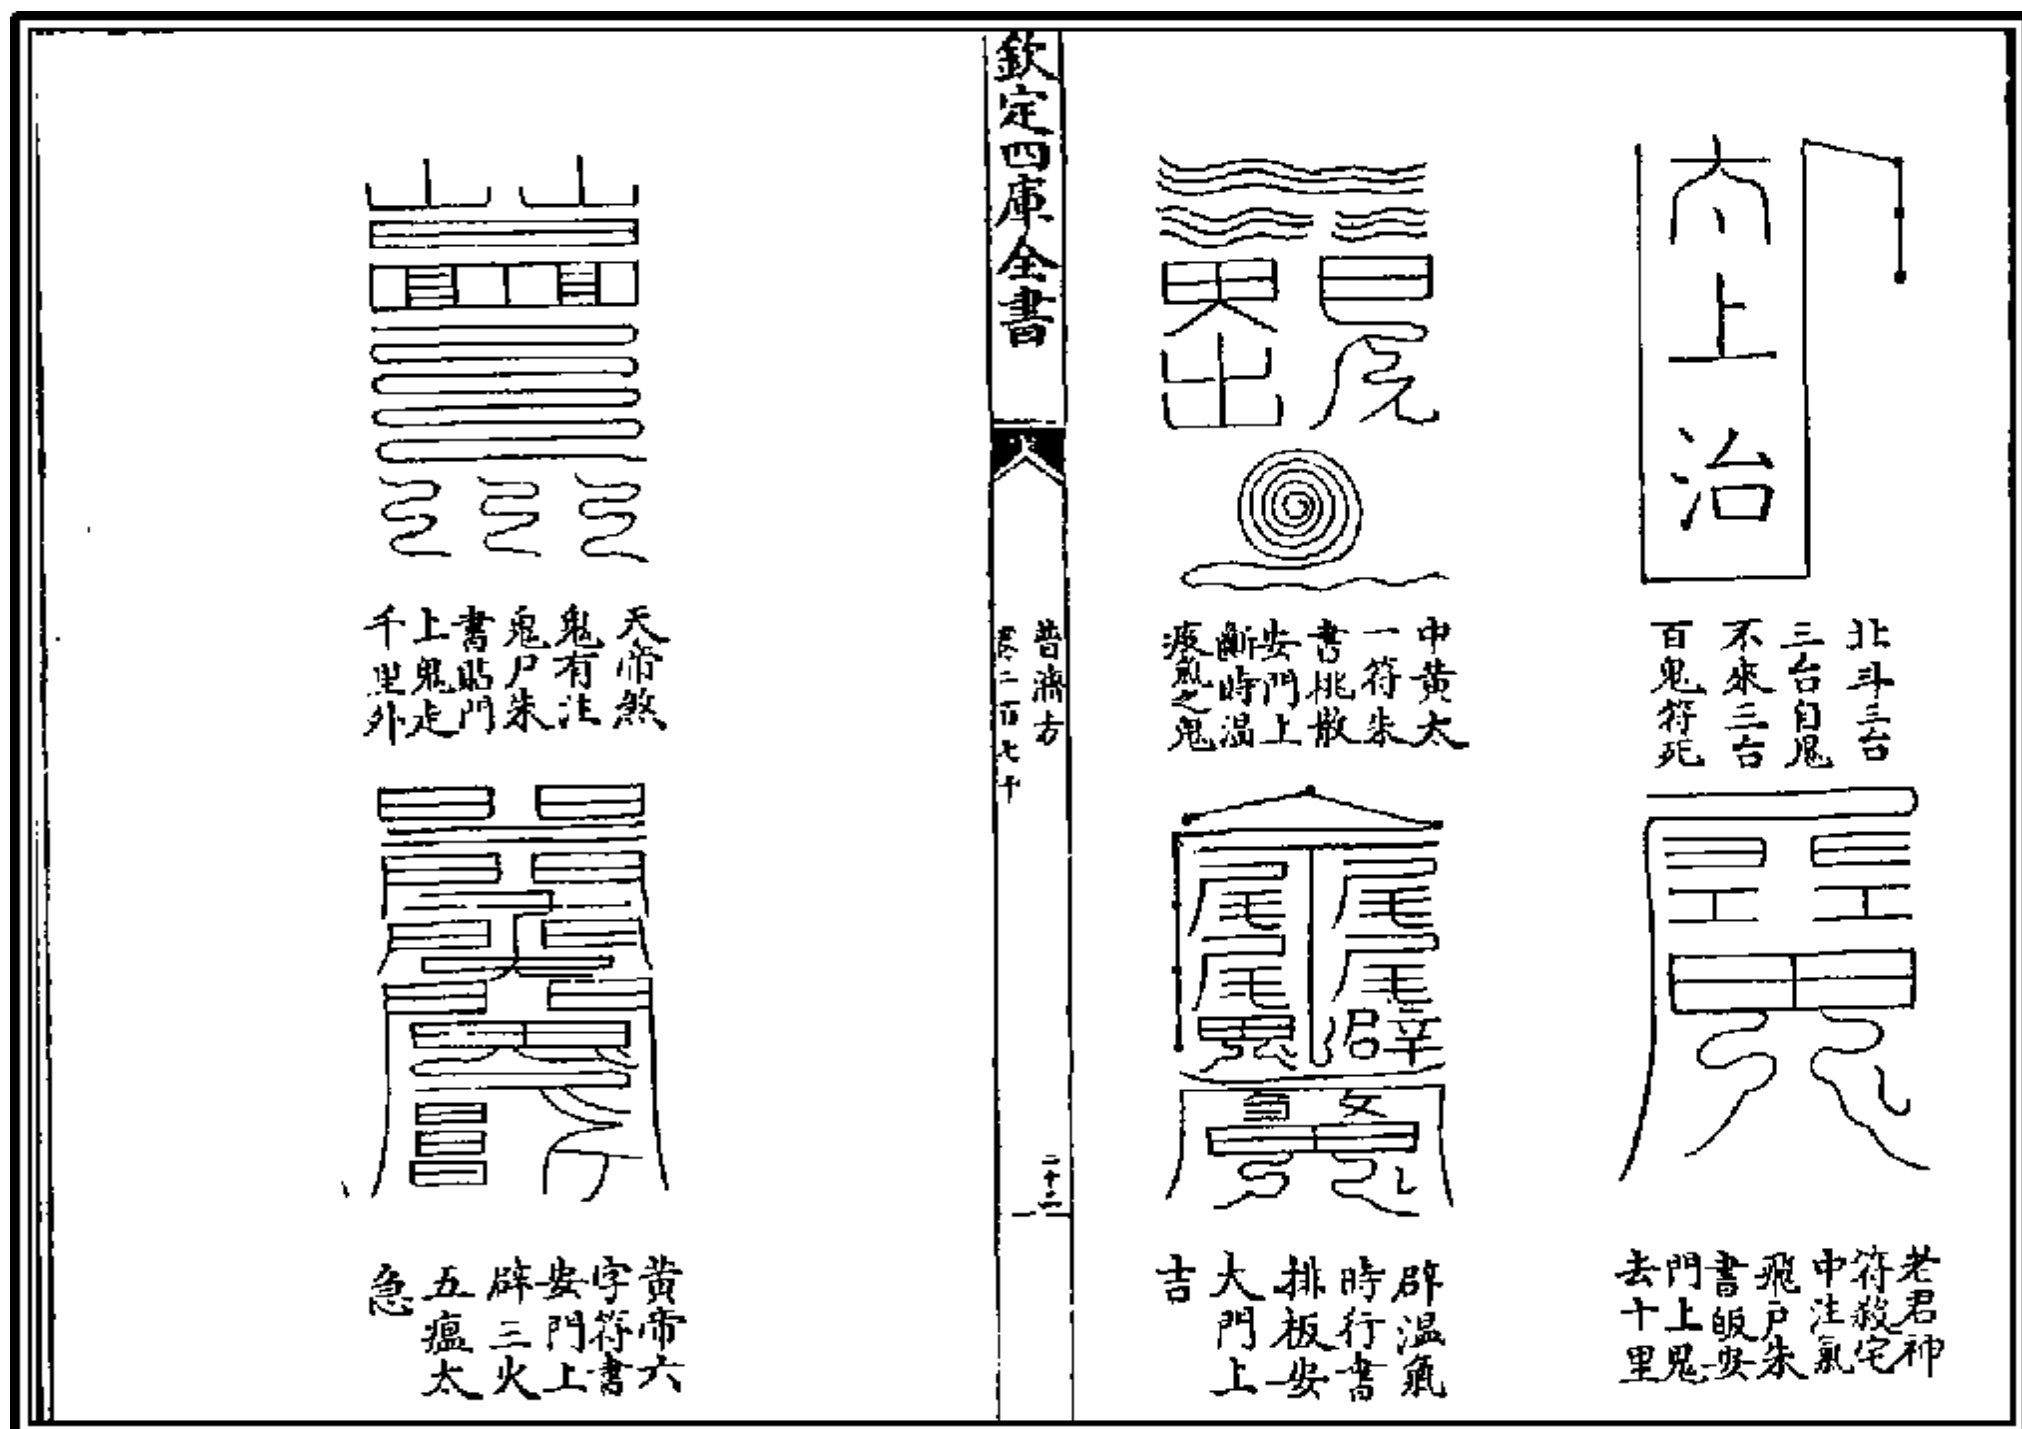 北斗三台
三台自鬼
不來三台
百鬼符死
老君神
符殺宅
中注氣
飛尸朱
書皈安
門上鬼
去十里
中黃太
一符朱
書桃散
安門上
斷時溫
疫氣之鬼
辟溫氣
時行書
排板安
大門上
吉
欽定四庫全書
普濟方
卷二百七十
天帝煞
鬼有注
鬼尸朱
書貼門
上鬼走
千里外
黃帝六
字符書
安門上
辟三火
五瘟太
急